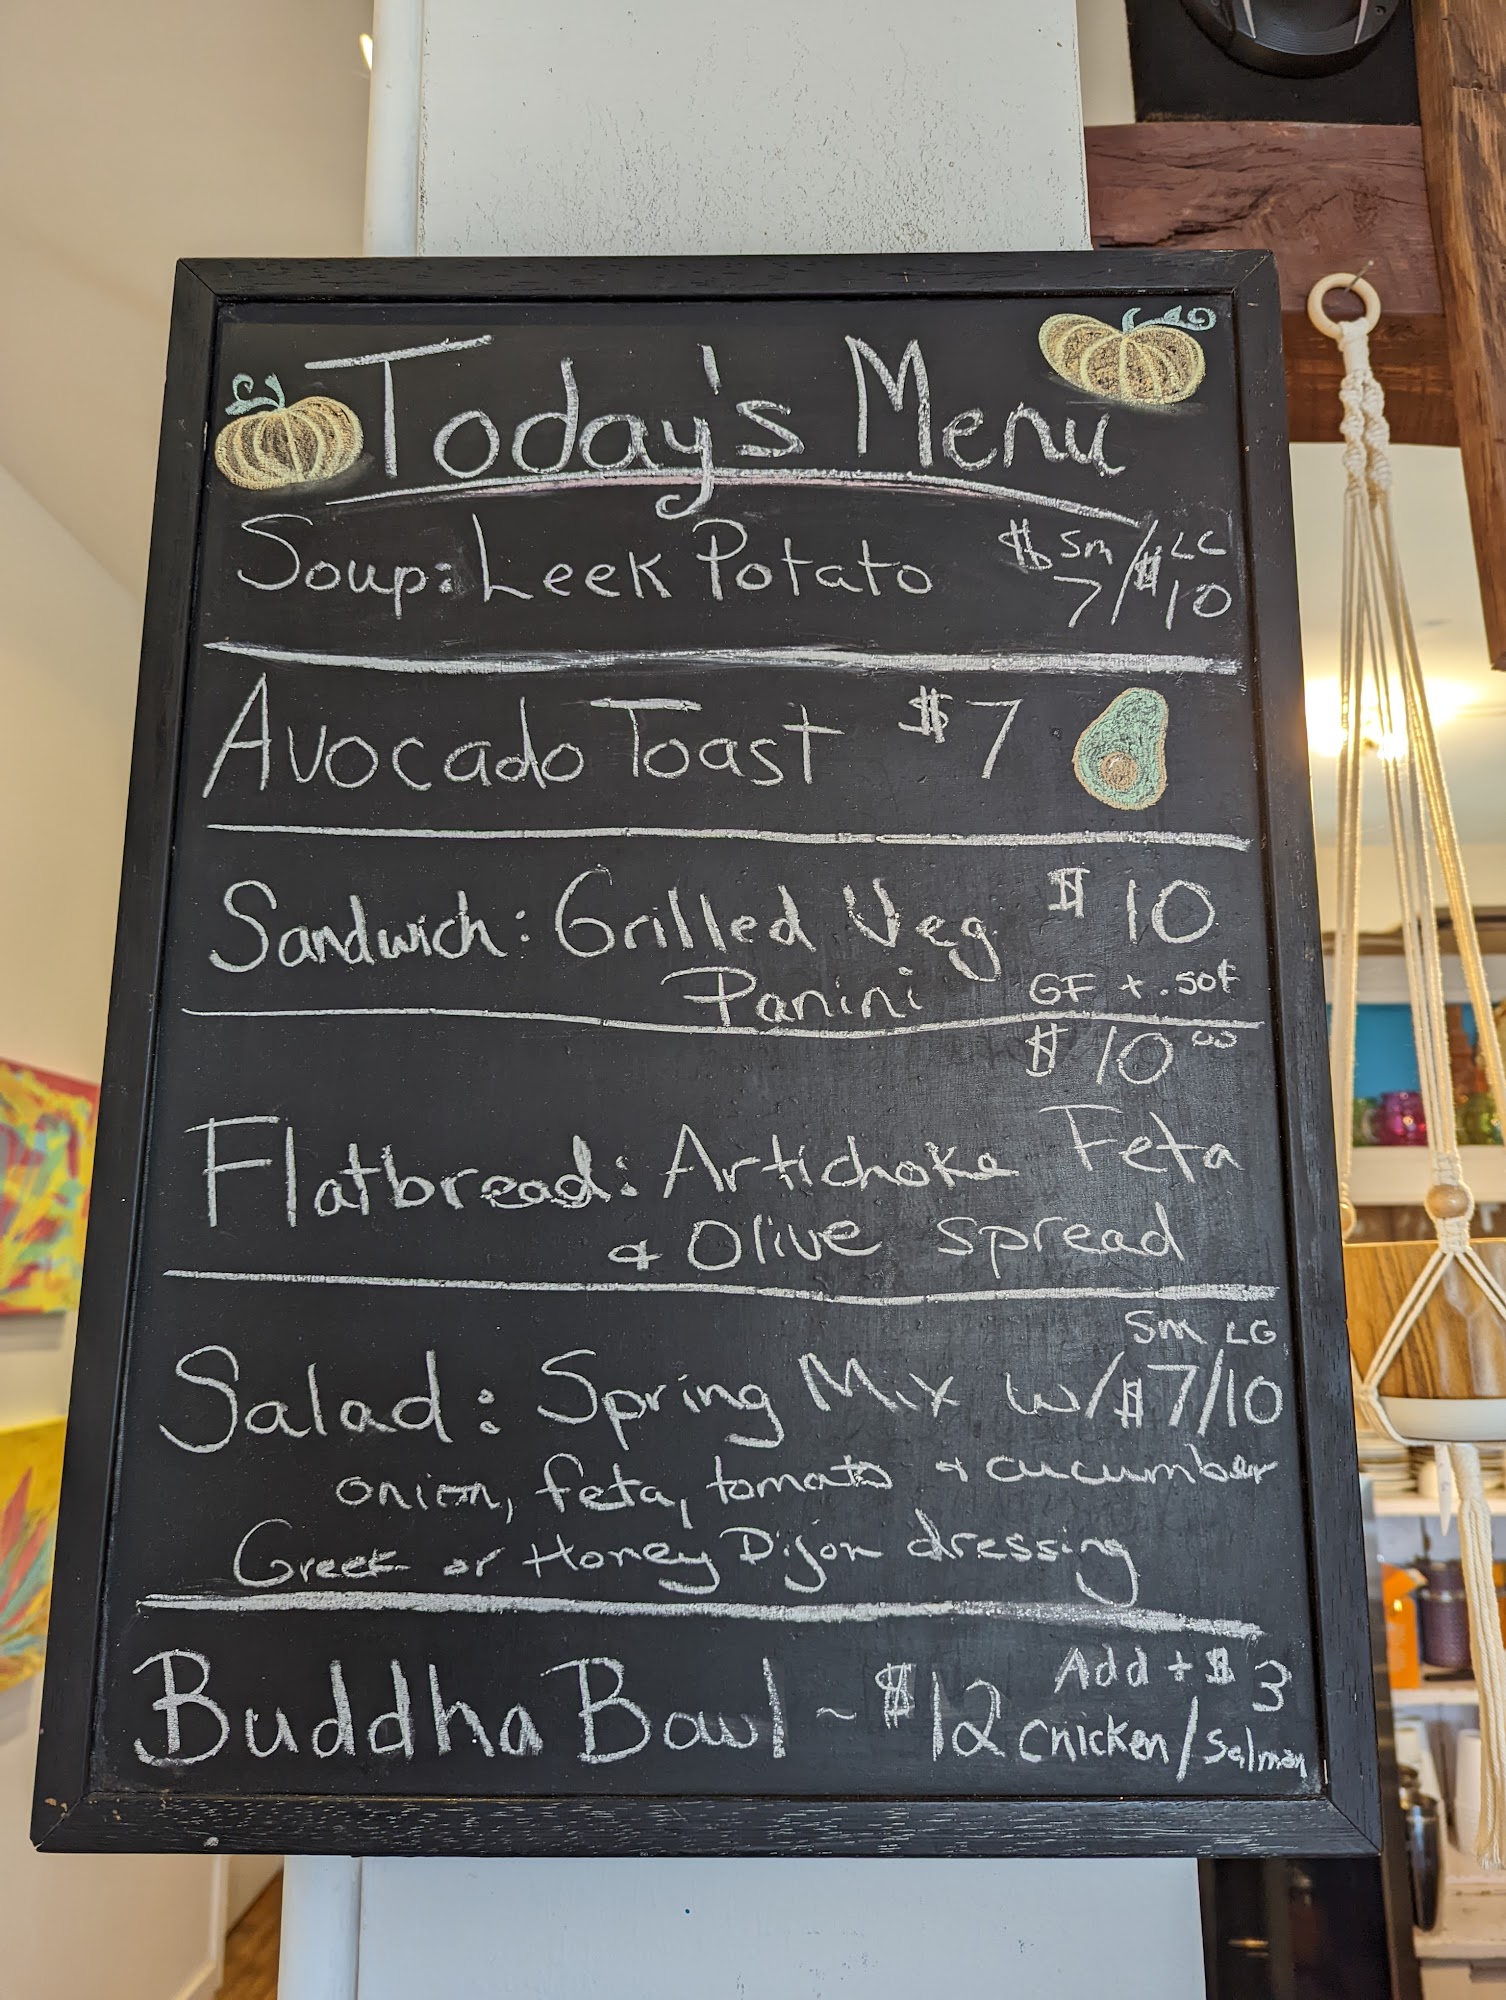 Today's Menu
Soup: Leek Potato $ Sm 7 / $ LG 10
Avocado Toast $7
Sandwich: Grilled Veg $10
Panini GF + .50¢
$10.00
Flatbread: Artichoke Feta
& Olive spread
Sm LG
Salad: Spring Mix w/ $7/10
onion, feta, tomato & cucumber
Greek or Honey Dijon dressing
Buddha Bowl ~ $12 Add + $3
Chicken/Salmon